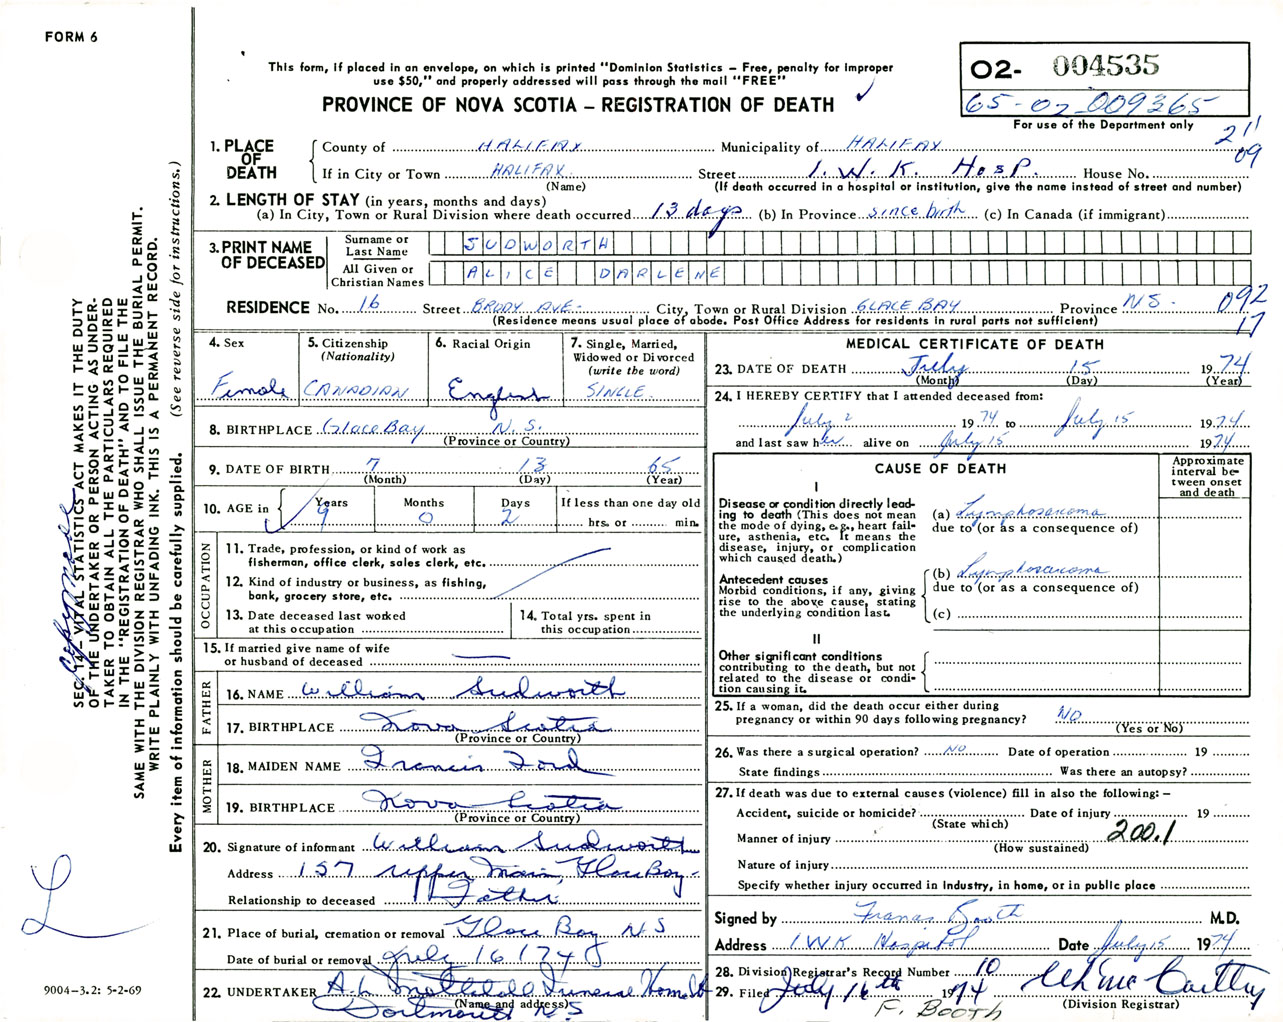 FORM 6
This form, if placed in an envelope, on which is printed "Dominion Statistics – Free, penalty for improper
use $50," and properly addressed will pass through the mail "FREE"
PROVINCE OF NOVA SCOTIA – REGISTRATION OF DEATH
02- 004535
65-02-009365
For use of the Department only
211
09
1. PLACE OF DEATH
County of HALIFAX Municipality of HALIFAX
If in City or Town HALIFAX Street I.W.K. Hosp. House No.
(Name) (If death occurred in a hospital or institution, give the name instead of street and number)
2. LENGTH OF STAY (in years, months and days)
(a) In City, Town or Rural Division where death occurred 13 days (b) In Province since birth (c) In Canada (if immigrant)
3. PRINT NAME OF DECEASED
Surname or Last Name SUDWORTH
All Given or Christian Names ALICE DARLENE
RESIDENCE No. 16 Street BRODY AVE- City, Town or Rural Division GLACE BAY Province NS-
(Residence means usual place of abode. Post Office Address for residents in rural parts not sufficient)
092
17
4. Sex
Female
5. Citizenship
(Nationality)
CANADIAN
6. Racial Origin
English
7. Single, Married,
Widowed or Divorced
(write the word)
SINGLE
8. BIRTHPLACE Glace Bay N.S.
(Province or Country)
9. DATE OF BIRTH 7 13 65
(Month) (Day) (Year)
10. AGE in
Years Months Days If less than one day old
9 0 2 hrs. or min.
OCCUPATION
11. Trade, profession, or kind of work as
fisherman, office clerk, sales clerk, etc.
12. Kind of industry or business, as fishing,
bank, grocery store, etc.
13. Date deceased last worked
at this occupation
14. Total yrs. spent in
this occupation
15. If married give name of wife
or husband of deceased
FATHER
16. NAME William Sudworth
17. BIRTHPLACE Nova Scotia
(Province or Country)
MOTHER
18. MAIDEN NAME Francis Ford
19. BIRTHPLACE Nova Scotia
(Province or Country)
20. Signature of informant William Sudworth
Address 157 upper Main, Glace Bay-
Relationship to deceased Father
21. Place of burial, cremation or removal Glace Bay N S
Date of burial or removal July 16/74
22. UNDERTAKER Funeral Home
(Name and address)
Dartmouth N S
MEDICAL CERTIFICATE OF DEATH
23. DATE OF DEATH July 15 1974
(Month) (Day) (Year)
24. I HEREBY CERTIFY that I attended deceased from:
July 2 1974 to July 15 1974
and last saw her alive on July 15 1974
CAUSE OF DEATH
Approximate
interval be-
tween onset
and death
I
Disease or condition directly lead-
ing to death (This does not mean
the mode of dying, e.g., heart fail-
ure, asthenia, etc. It means the
disease, injury, or complication
which caused death.)
(a) Lymphosarcoma
due to (or as a consequence of)
Antecedent causes
Morbid conditions, if any, giving
rise to the above cause, stating
the underlying condition last.
(b) Lymphosarcoma
due to (or as a consequence of)
(c)
II
Other significant conditions
contributing to the death, but not
related to the disease or condi-
tion causing it.
25. If a woman, did the death occur either during
pregnancy or within 90 days following pregnancy? NO
(Yes or No)
26. Was there a surgical operation? NO Date of operation 19
State findings Was there an autopsy?
27. If death was due to external causes (violence) fill in also the following: –
Accident, suicide or homicide? Date of injury 19
(State which)
Manner of injury 200.1
(How sustained)
Nature of injury
Specify whether injury occurred in Industry, in home, or in public place
Signed by Francis Booth M.D.
Address IWK Hospital Date July 15 1974
28. Division Registrar's Record Number 10
29. Filed July 16th 1974
(Division Registrar)
F. BOOTH
SEC. 14 – VITAL STATISTICS ACT MAKES IT THE DUTY
OF THE UNDERTAKER OR PERSON ACTING AS UNDER-
TAKER TO OBTAIN ALL THE PARTICULARS REQUIRED
IN THE "REGISTRATION OF DEATH" AND TO FILE THE
SAME WITH THE DIVISION REGISTRAR WHO SHALL ISSUE THE BURIAL PERMIT.
WRITE PLAINLY WITH UNFADING INK. THIS IS A PERMANENT RECORD.
Every item of information should be carefully supplied. (See reverse side for instructions.)
9004–3.2: 5-2-69